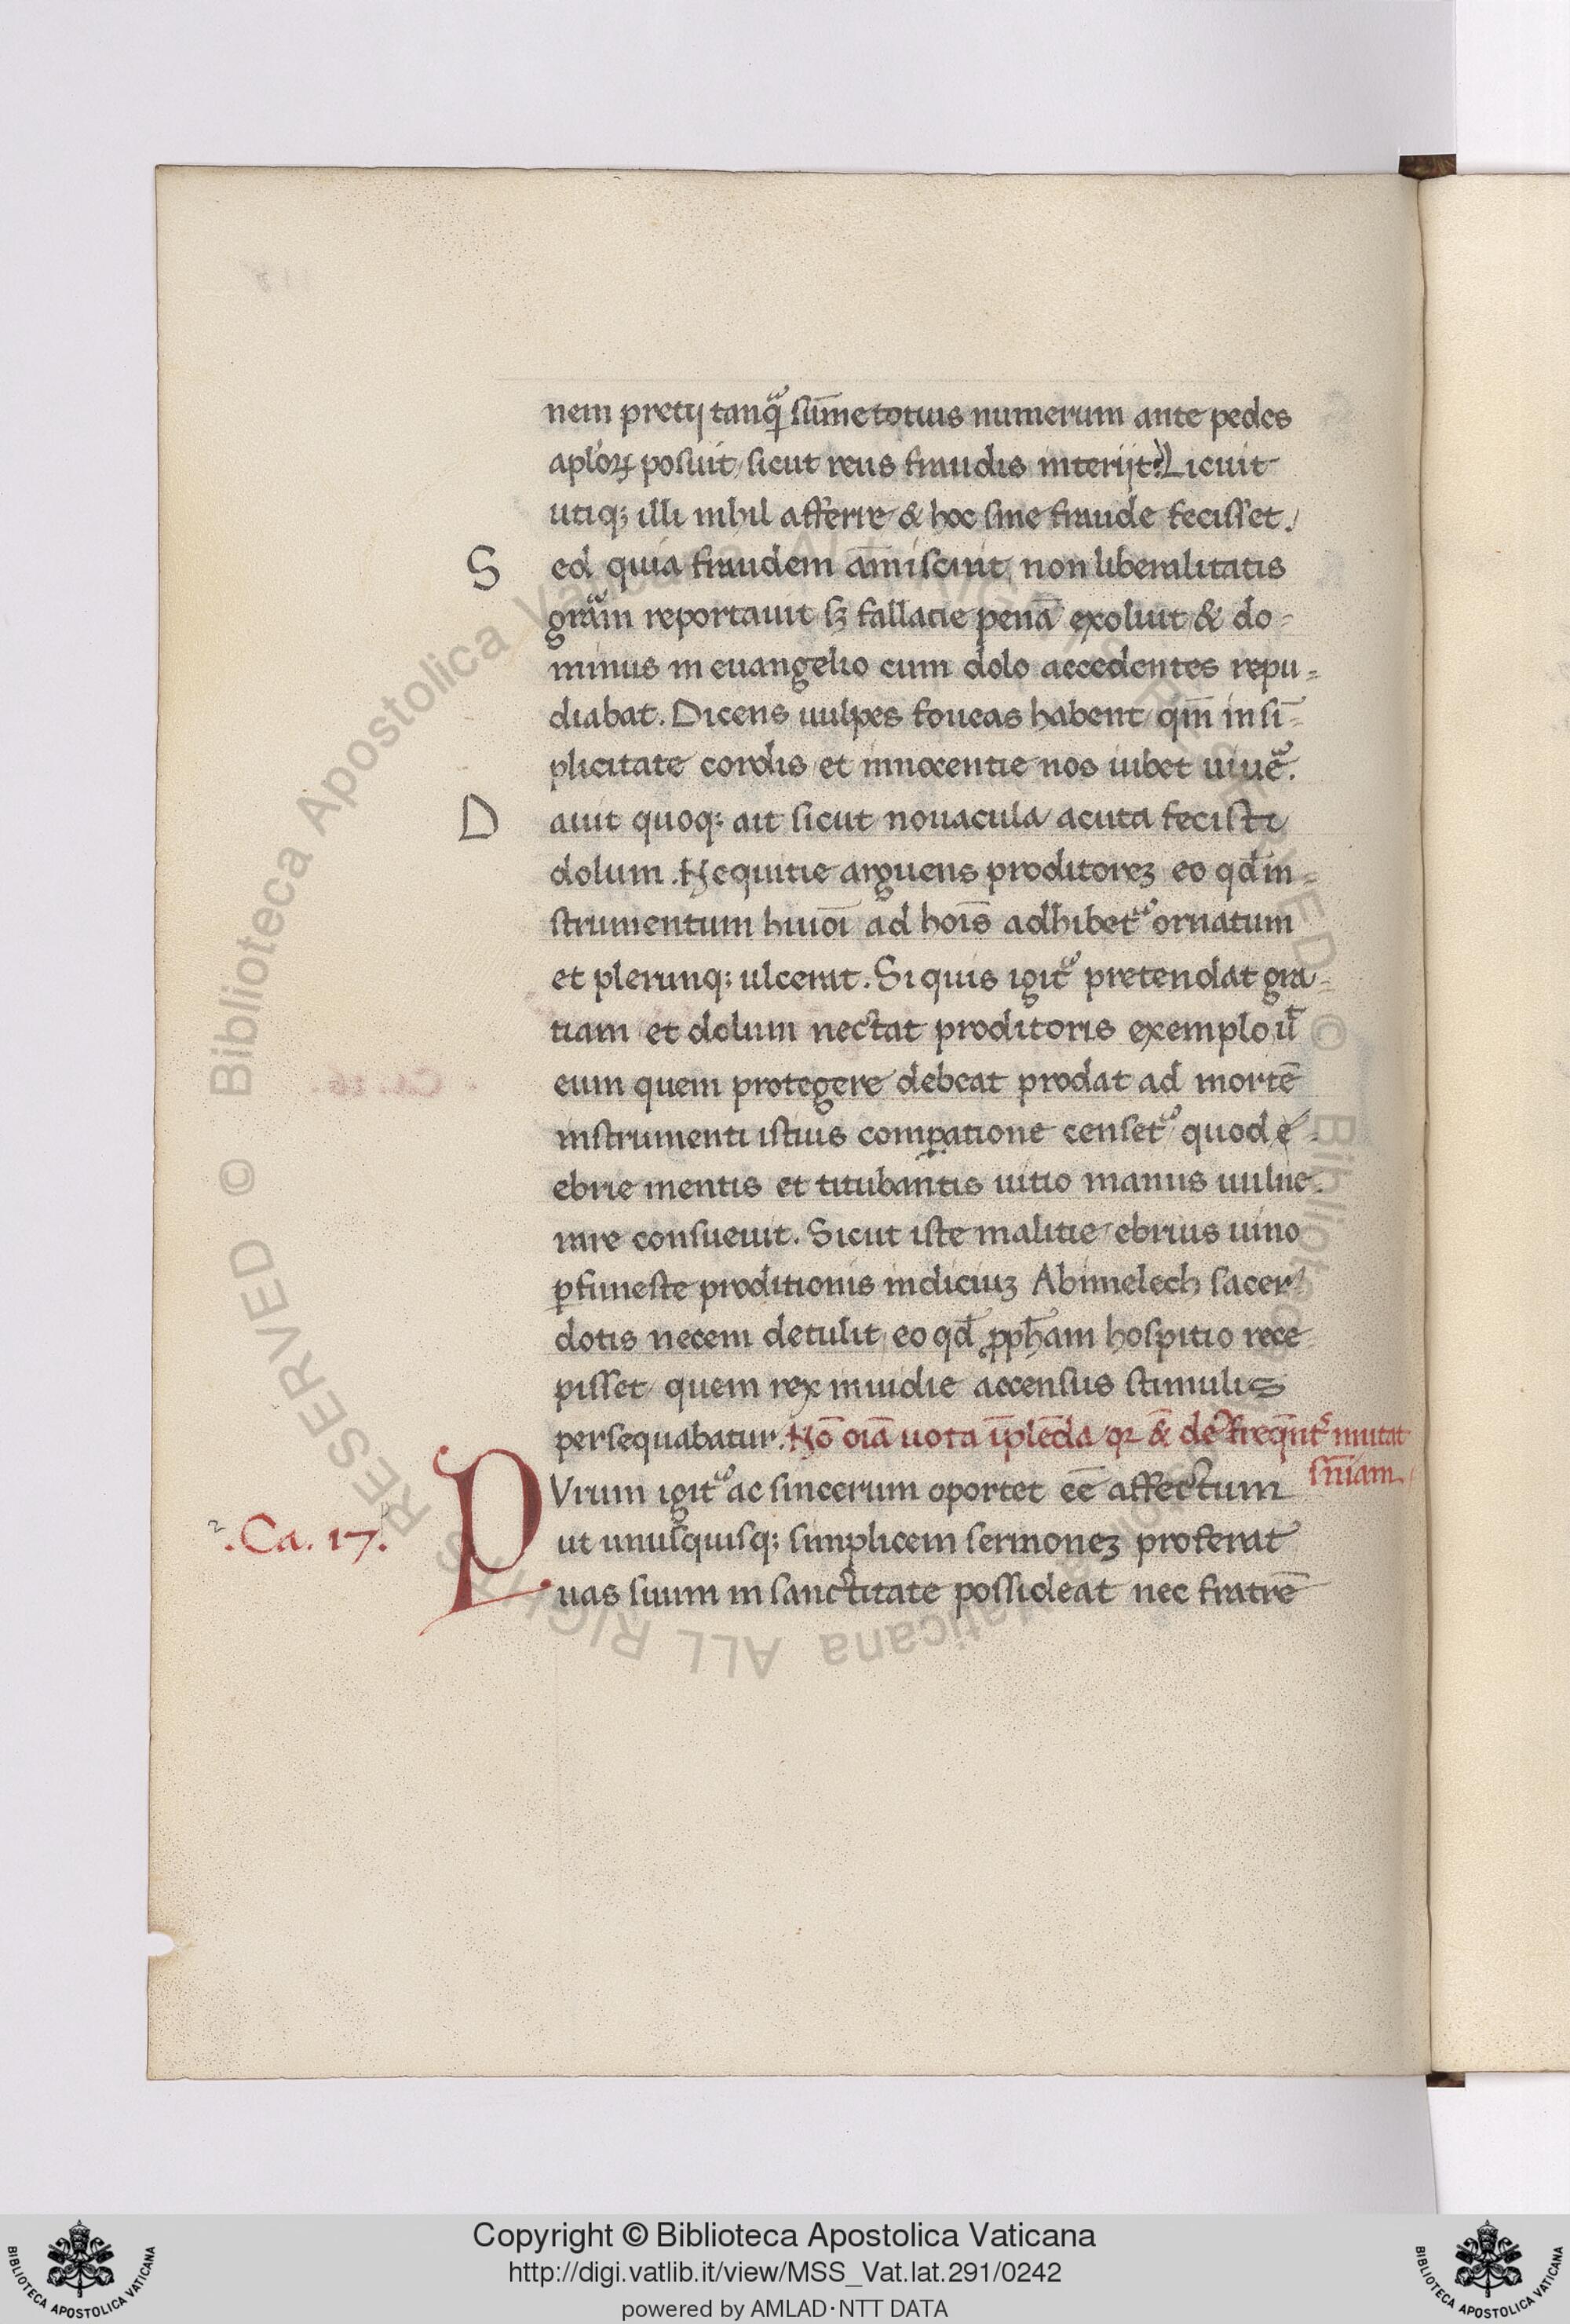 nem pretij tanqᷓ sūme totius numerum ante pedes
apl'oꝝ posuit, sicut reus fraudis interijt? Licuit
utiqꝫ illi nihil afferre & hoc sine fraude fecisset.
Sed quia fraudem am̄iscuit, non liberalitatis
gr̄am reportauit sꝫ fallacie penā exoluit & do=
minus in euangelio cum dolo accedentes repu=
diabat. Dicens uulpes foueas habent, qm̄ in sī=
plicitate cordis, et innocentie nos iubet uiuē.
Dauit quoqꝫ ait sicut nouacula acuta fecisti
dolum. Nequitie arguens proditoreꝫ eo qd̄ in=
strumentum huiōi ad hoīs adhibetᷣ ornatum
et plerunqꝫ ulcerat. Si quis igitᷣ pretendat gra=
tiam et dolum nectat proditoris exemplo ut̄
eum quem protegere debeat prodat ad mortē
instrumenti istius comꝑatione censetᷣ quod e
ebrie mentis et titubantis uitio manus uulne=
rare consueuit. Sicut iste malitie ebrius uino
ꝑ funeste proditionis indiciuꝫ Abimelech sacer
dotis necem detulit, eo qd̄ ꝓph̄am hospitio rece
pisset, quem rex inuidie accensus stimulis
persequabatur. Nō oīa uota īplēda qꝛ & de' freqn̄tᷣ mutat
sn̄iam.
PVrum igitᷣ ac sincerum oportet eē affectum
.Ca. 17.
ut unusquisqꝫ simplicem sermoneꝫ proferat
uas suum in sanctitate possideat nec fratrē
Copyright © Biblioteca Apostolica Vaticana
http://digi.vatlib.it/view/MSS_Vat.lat.291/0242
powered by AMLAD·NTT DATA